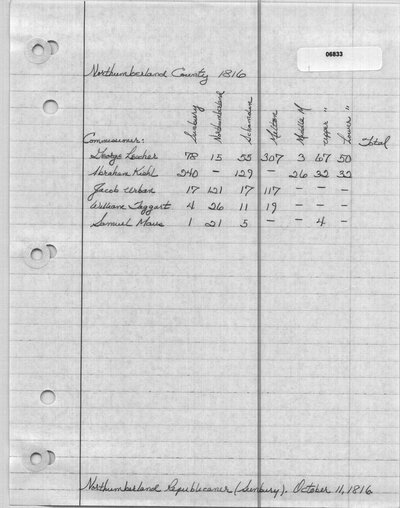 06833
Northumberland County 1816
Sunbury Northumberland Shamokin Milton Middle M Upper " Lower " Total
Commissioner:
George Locher 78 15 55 307 3 67 50
Abraham Kiehl 240 - 129 - 26 32 32
Jacob Urban 17 121 17 117 - - -
William Taggart 4 26 11 19 - - -
Samuel Maus 1 21 5 - - 4 -
Northumberland Republicaner (Sunbury). October 11, 1816.